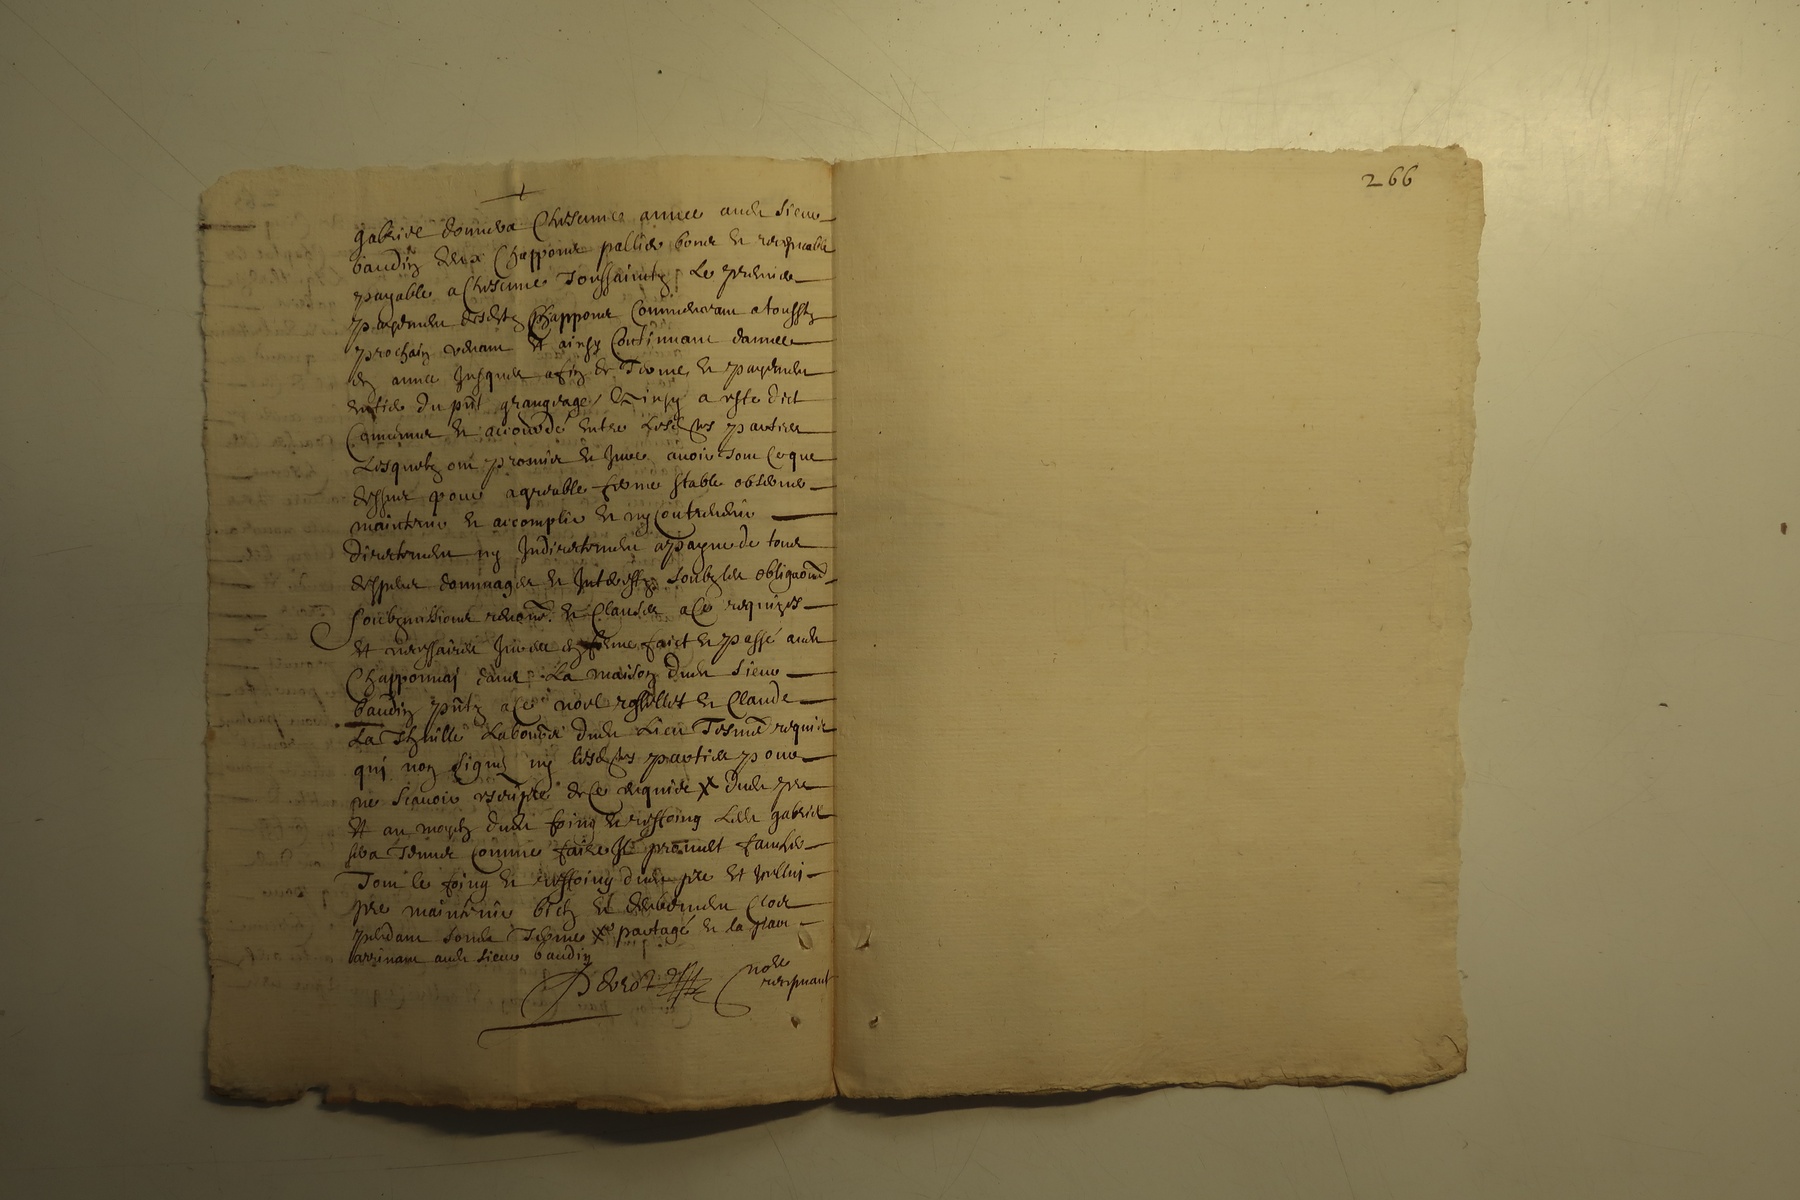 266
gabriel donnera Chescune annee audt sieur
baudin deux Chappons pallier bons et recepvable
payable a Chescune Toussainctz Le premier
payement desdtz Chappons Commencant a toussts
prochain venant Et ainsy Continuant dannee
en annee Jusques a fin de Terme et payement
entier du pnt grangeage Et ainsy a esté dict
Convenu et accordé entre Lesdtes parties
Lesquelz ont promis et Juré avoir tout Ce que
dessus pour agreable ferme stable observer
maintenir et accomplir et ny Contrevenir
directement ny Indirectement a payne de tous
despens dommages et Interestz soubz les obligaons
soubzmissions renons et Clauses a Ce requises
Et necessaires Juree en forme faict et passé audt
Chapponnay dans La maison dudt sieur
baudin pntz a Ce noel et Claude
La labour dudt Lieu Tesmo requis
qui non signé ny lesdtes parties pour
ne scavoir escripre de Ce requis x dudt pre
Et au moyen dudt foing et restoing Ledt gabriel
sera Tenu Comme faire Il promet
Tout le foing et restoing dudt pre Et Icelluy
pre maintenir bien et deuement Clos
pendant ledt Terme x partagé et la
audt sieur baudin
note
recepvant